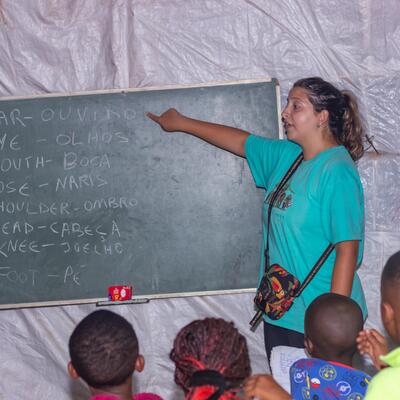 AR - OUVIR
YE - OLHOS
OUTH - BOCA
OSE - NARIS
HOULDER - OMBRO
EAD - CABEÇA
KNEE - JOELHO
FOOT - PÉ